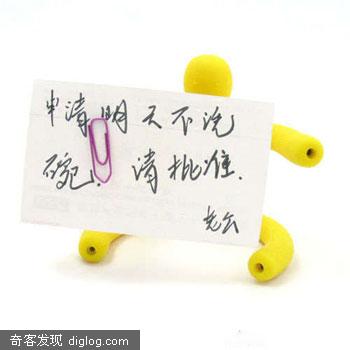 申请明天不洗
碗. 请批准.
老公
奇客发现 diglog.com